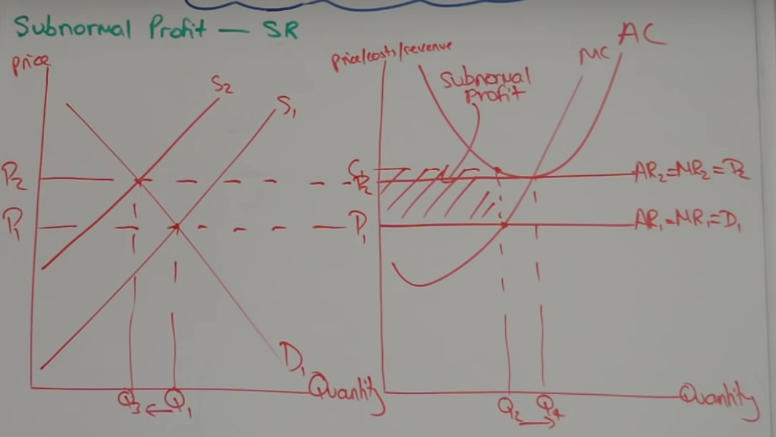 Subnormal Profit — SR
Price
S2
S1
P2
P1
D1
Quantity
Q3 ← Q1
Price/costs/revenue
Subnormal
Profit
MC
AC
C1
P2
P1
AR2=MR2=D2
AR1=MR1=D1
Quantity
Q2 → Q4